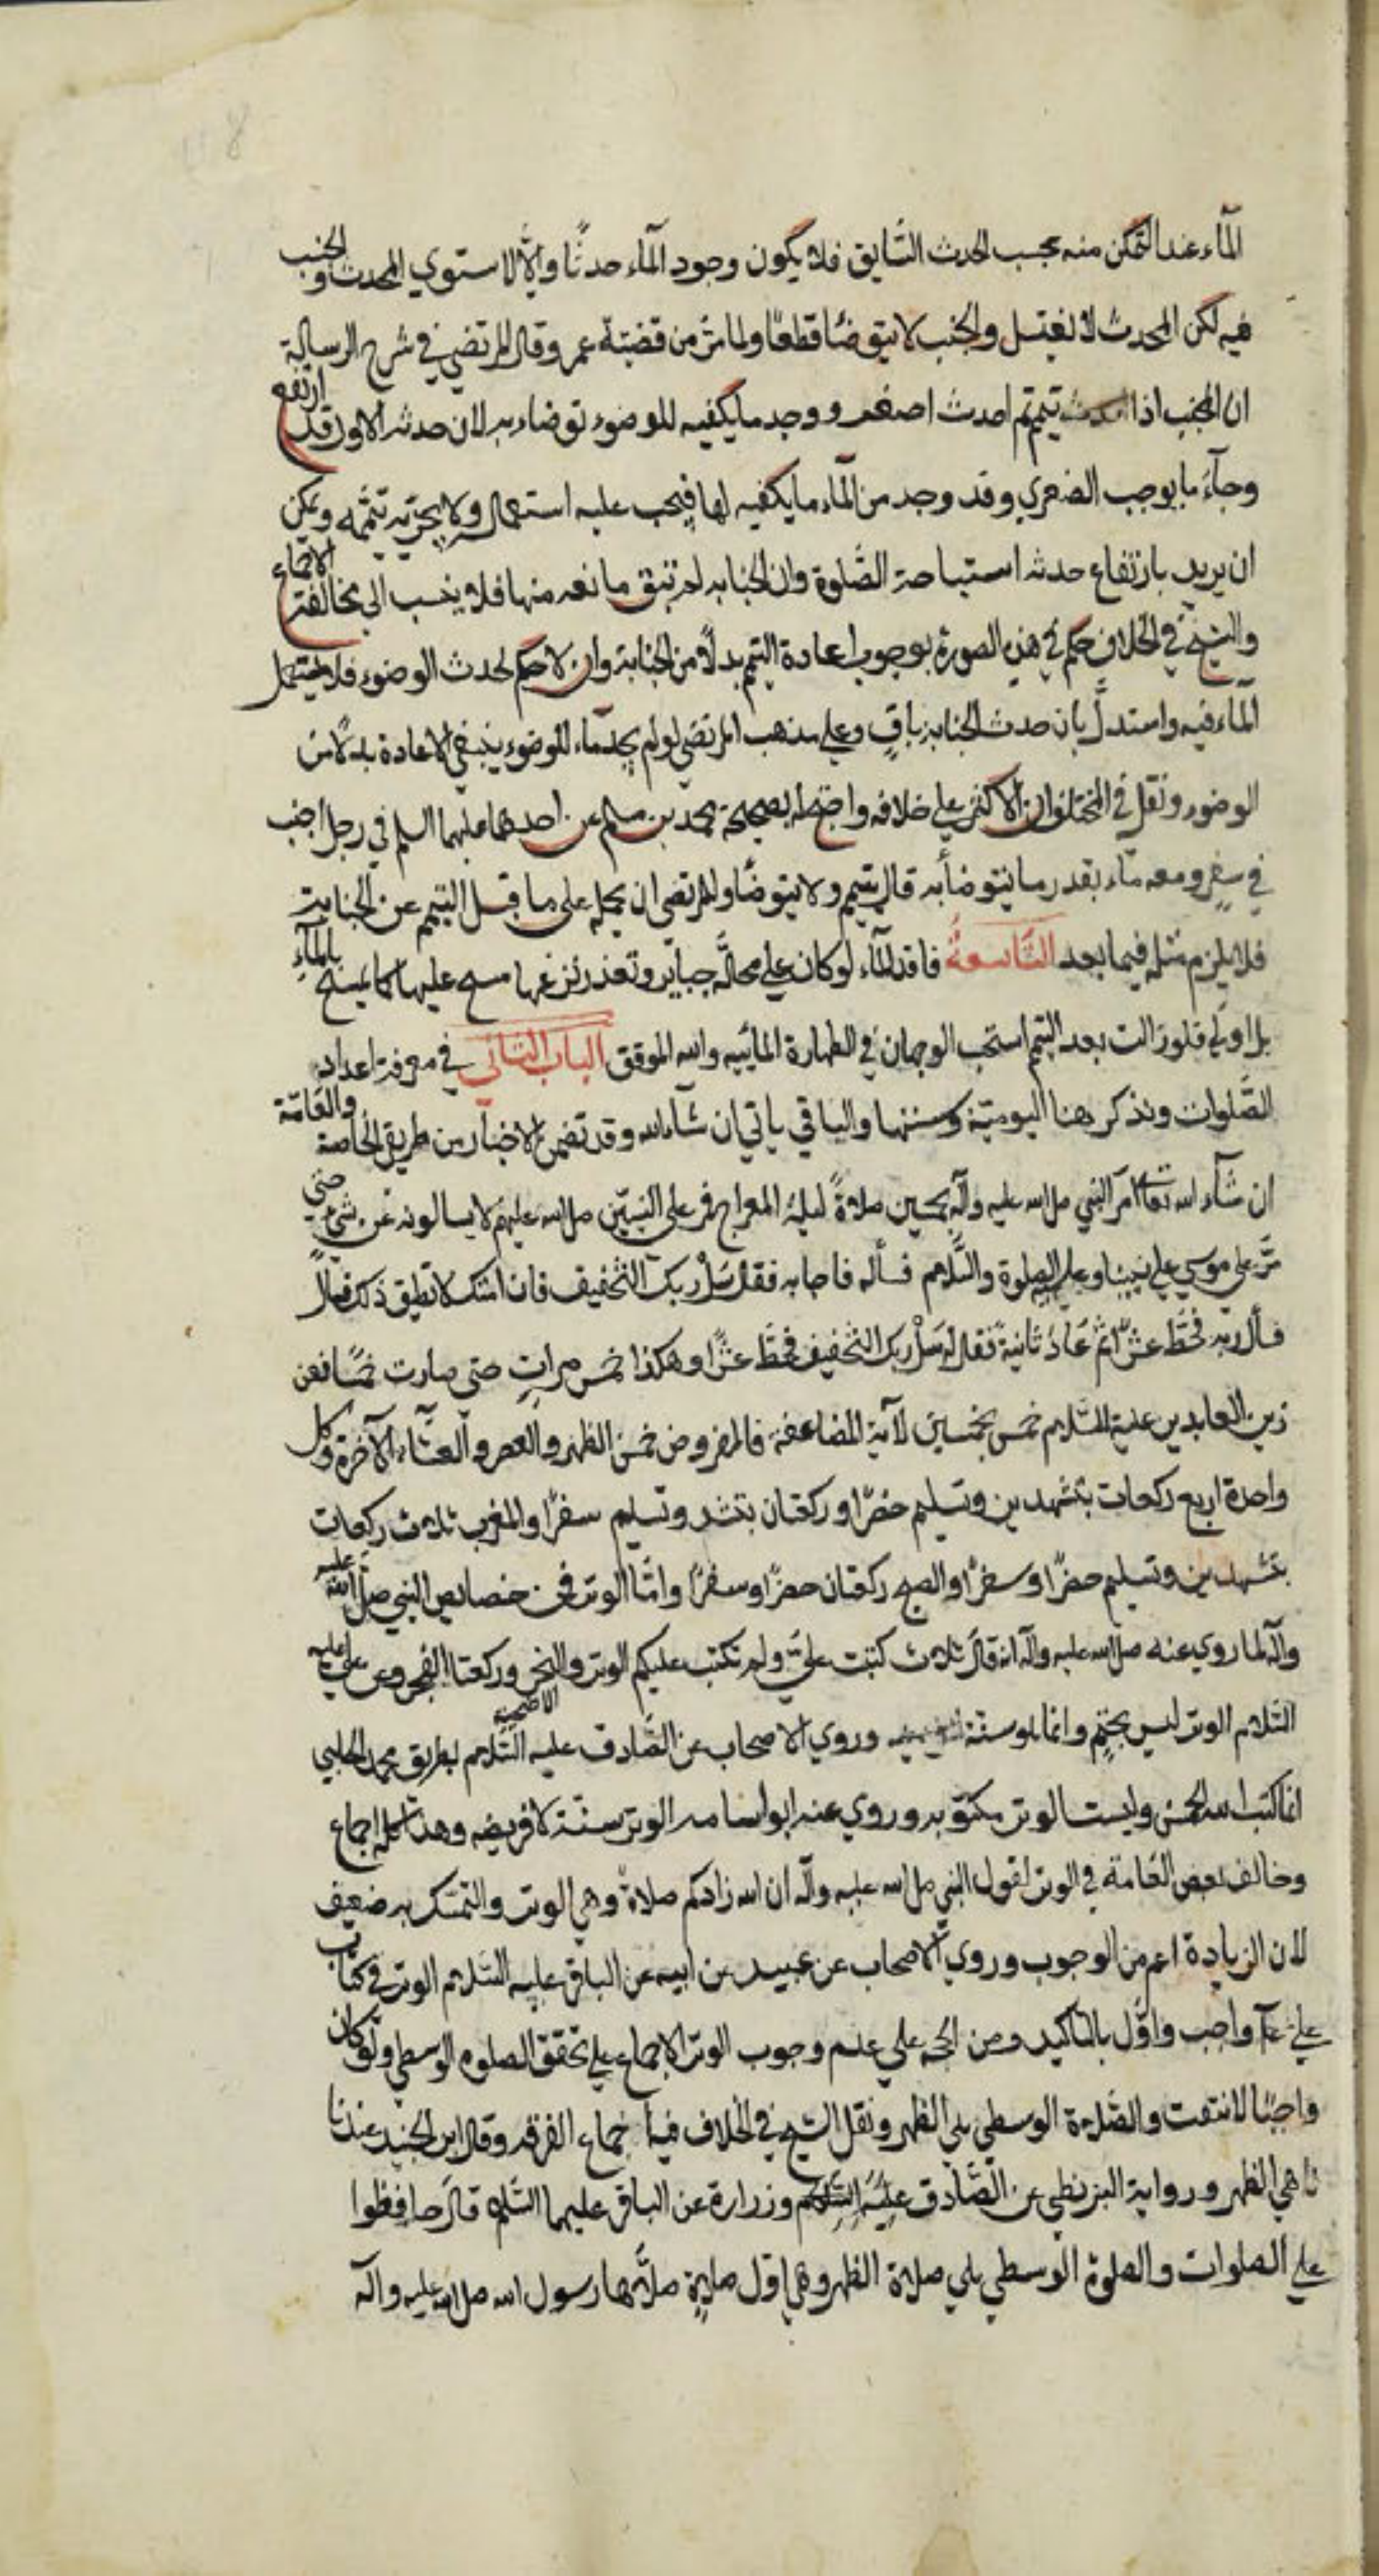 المآء عند التمكن منه بحسب الحدث السّابق فلا يكون وجود المآء حدثًا والّا لاستوي المحدث والجنب
فيه لكن المحدث لا يغتسل والجنب لا يتوضا قطعًا ولما مرّ من قضيّة عمرو وقال المرتضي في شرح الرسالة
ان الجنب اذا تيمّم ثم احدث اصغر ووجد ما يكفيه للوضوء توضاء به لان حدثه الاول قد ارتفع
وجآء ما يوجب الصغري وقد وجد من المآء ما يكفيه لها فيجب عليه استعماله ولا يجزيه تيمّمه ويمكن
ان يريد بارتفاع حدثه استباحة الصّلوة وان الجنابه لم تبق مانعه منها فلا ينسب الي مخالفة الاجماع
والشيخ في الخلاف حكم في هذه الصورة بوجوب اعادة التيمم بدلًا من الجنابة وان لا حكم لحدث الوضوء فلا يستعمل
المآء فيه واستدلّ بان حدث الجنابة باقٍ وعلي مذهب المرتضي لو لم يجد مآء للوضوء ينبغي الاعادة بدلًا من
الوضوء ونقل في المختلف ان الاكثر علي خلافه واحتج له بصحيحة محمد بن مسلم عن احدهما عليهما السلم في رجل اجنب
في سفرٍ ومعه مآء بقدر ما يتوضأ به قال يتيمم ولا يتوضأ وللمرتضي ان يحمله علي ما قبل التيمم عن الجنابة
فلا يلزم مثله فيما بعد التّاسعةُ فاقد المآء لو كان علي محالّه جباير وتعذر نزعها مسح عليها كما يمسح بالمآءِ
بل اولي فلو زالت بعد التيمم استحب الوجهان في الطهارة المائيه والله الموفق الباب الثاني في معرفة اعداد
الصّلوات ونذكر هنا اليوميّة وسننها والباقي ياتي ان شآء الله وقد تضمن الاخبار من طريق الخاصة والعامّة
ان شآء الله تعالي امر النبي صل الله عليه وآله بخمسين صلاةً ليلة المعراج فمر علي النبيّين صل الله عليهم لا يسالونه عن شيء حتي
مرّ علي موسي علي نبينا وعليه الصلوة والسّلام فسأله فاجابه فقال سَلْ ربك التخفيف فان امتك لا تطيق ذلك قال
فسأل ربه فحَطّ عشرًا ثم عَادَ ثانيةً فقال له سَلْ ربك التخفيف فحطّ عشرًا وهكذا خمس مراتٍ حتي صارت خمسًا فعن
زين العابدين عليه السّلام خمس بخمسين لآية المضاعفة فالمفروض خمس الظهر والعصر والعشآء الآخرة وكل
واحدة اربع ركعات بتشهدين وتسليم حضرًا وركعتان بتشهد وتسليم سفرًا والمغرب ثلاث ركعات
بتشهدين وتسليم حضرًا وسفرًا والصبح ركعتان حضرًا وسفرًا وامّا الوتر فمن خصايص النبي صل الله عليه
وآله لما روي عنه صل الله عليه وآله انه قال ثلاث كتبت عليّ ولم تكتب عليكم الوتر والنحر وركعتا الفجر وعن علي عليه
السّلام الوتر ليس بحتم وانما هو سنّة وروي الاصحاب عن الصّادق عليه السّلام بطريق محمد الحلبي
انما كتب الله الخمس وليست الوتر مكتوبه وروي عنه ابو اسامه الوتر سنّة لا فريضه وهذا كله اجماع
وخالف بعض العامة في الوتر لقول النبي صل الله عليه وآله ان الله زادكم صلاةً وهي الوتر والتمسّك به ضعيف
لان الزيادة اعم من الوجوب وروي الاصحاب عن عبيد عن ابيه عن الباقر عليه السّلام الوتر في كتاب
علي عآ واجب واوّل بالتاكيد ومن الحجه علي عدم وجوب الوتر الاجماع علي تحقق الصلوة الوسطي ولو كان
واجبًا لانتفت والصّلاة الوسطي هي الظهر ونقل الشيخ في الخلاف فيه اجماع الفرقه وقال ابن الجنيد عندنا
انها هي الظهر ورواية البزنطي عن الصّادق عليه السّلام وزرارة عن الباقر عليهما السّلم قال حافظوا
علي الصلوات والصلوة الوسطي هي صلاة الظهر وهي اول صلاةٍ صلّاها رسول الله صل الله عليه وآله